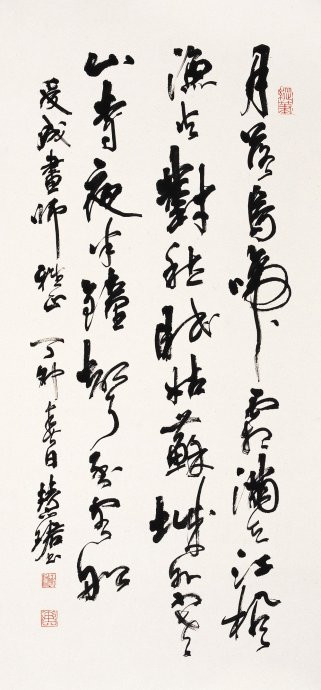 月落烏啼霜滿天江楓
漁火對愁眠姑蘇城外寒
山寺夜半鐘聲到客船
畫師雅正 丁卯春日慧珺書